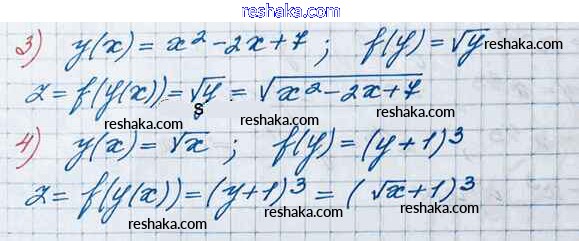 reshaka.com
3) y(x) = x² - 2x + 7 ; f(y) = √y reshaka.com
z = f(y(x)) = √y = √(x² - 2x + 7)
reshaka.com 8 reshaka.com
4) y(x) = √x ; f(y) = (y + 1)³
reshaka.com reshaka.com
z = f(y(x)) = (y + 1)³ = (√x + 1)³
reshaka.com reshaka.com